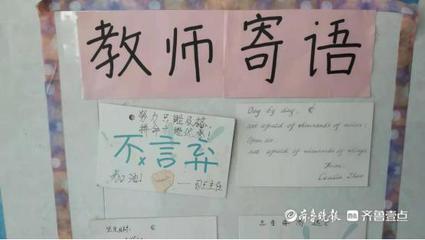 教师寄语
努力只能及格
拼命才能优秀!
不言弃
加油!
Day by day,
not afraid of thousands of miles;
not afraid of thousands of things.
From:
齐鲁晚报 齐鲁壹点